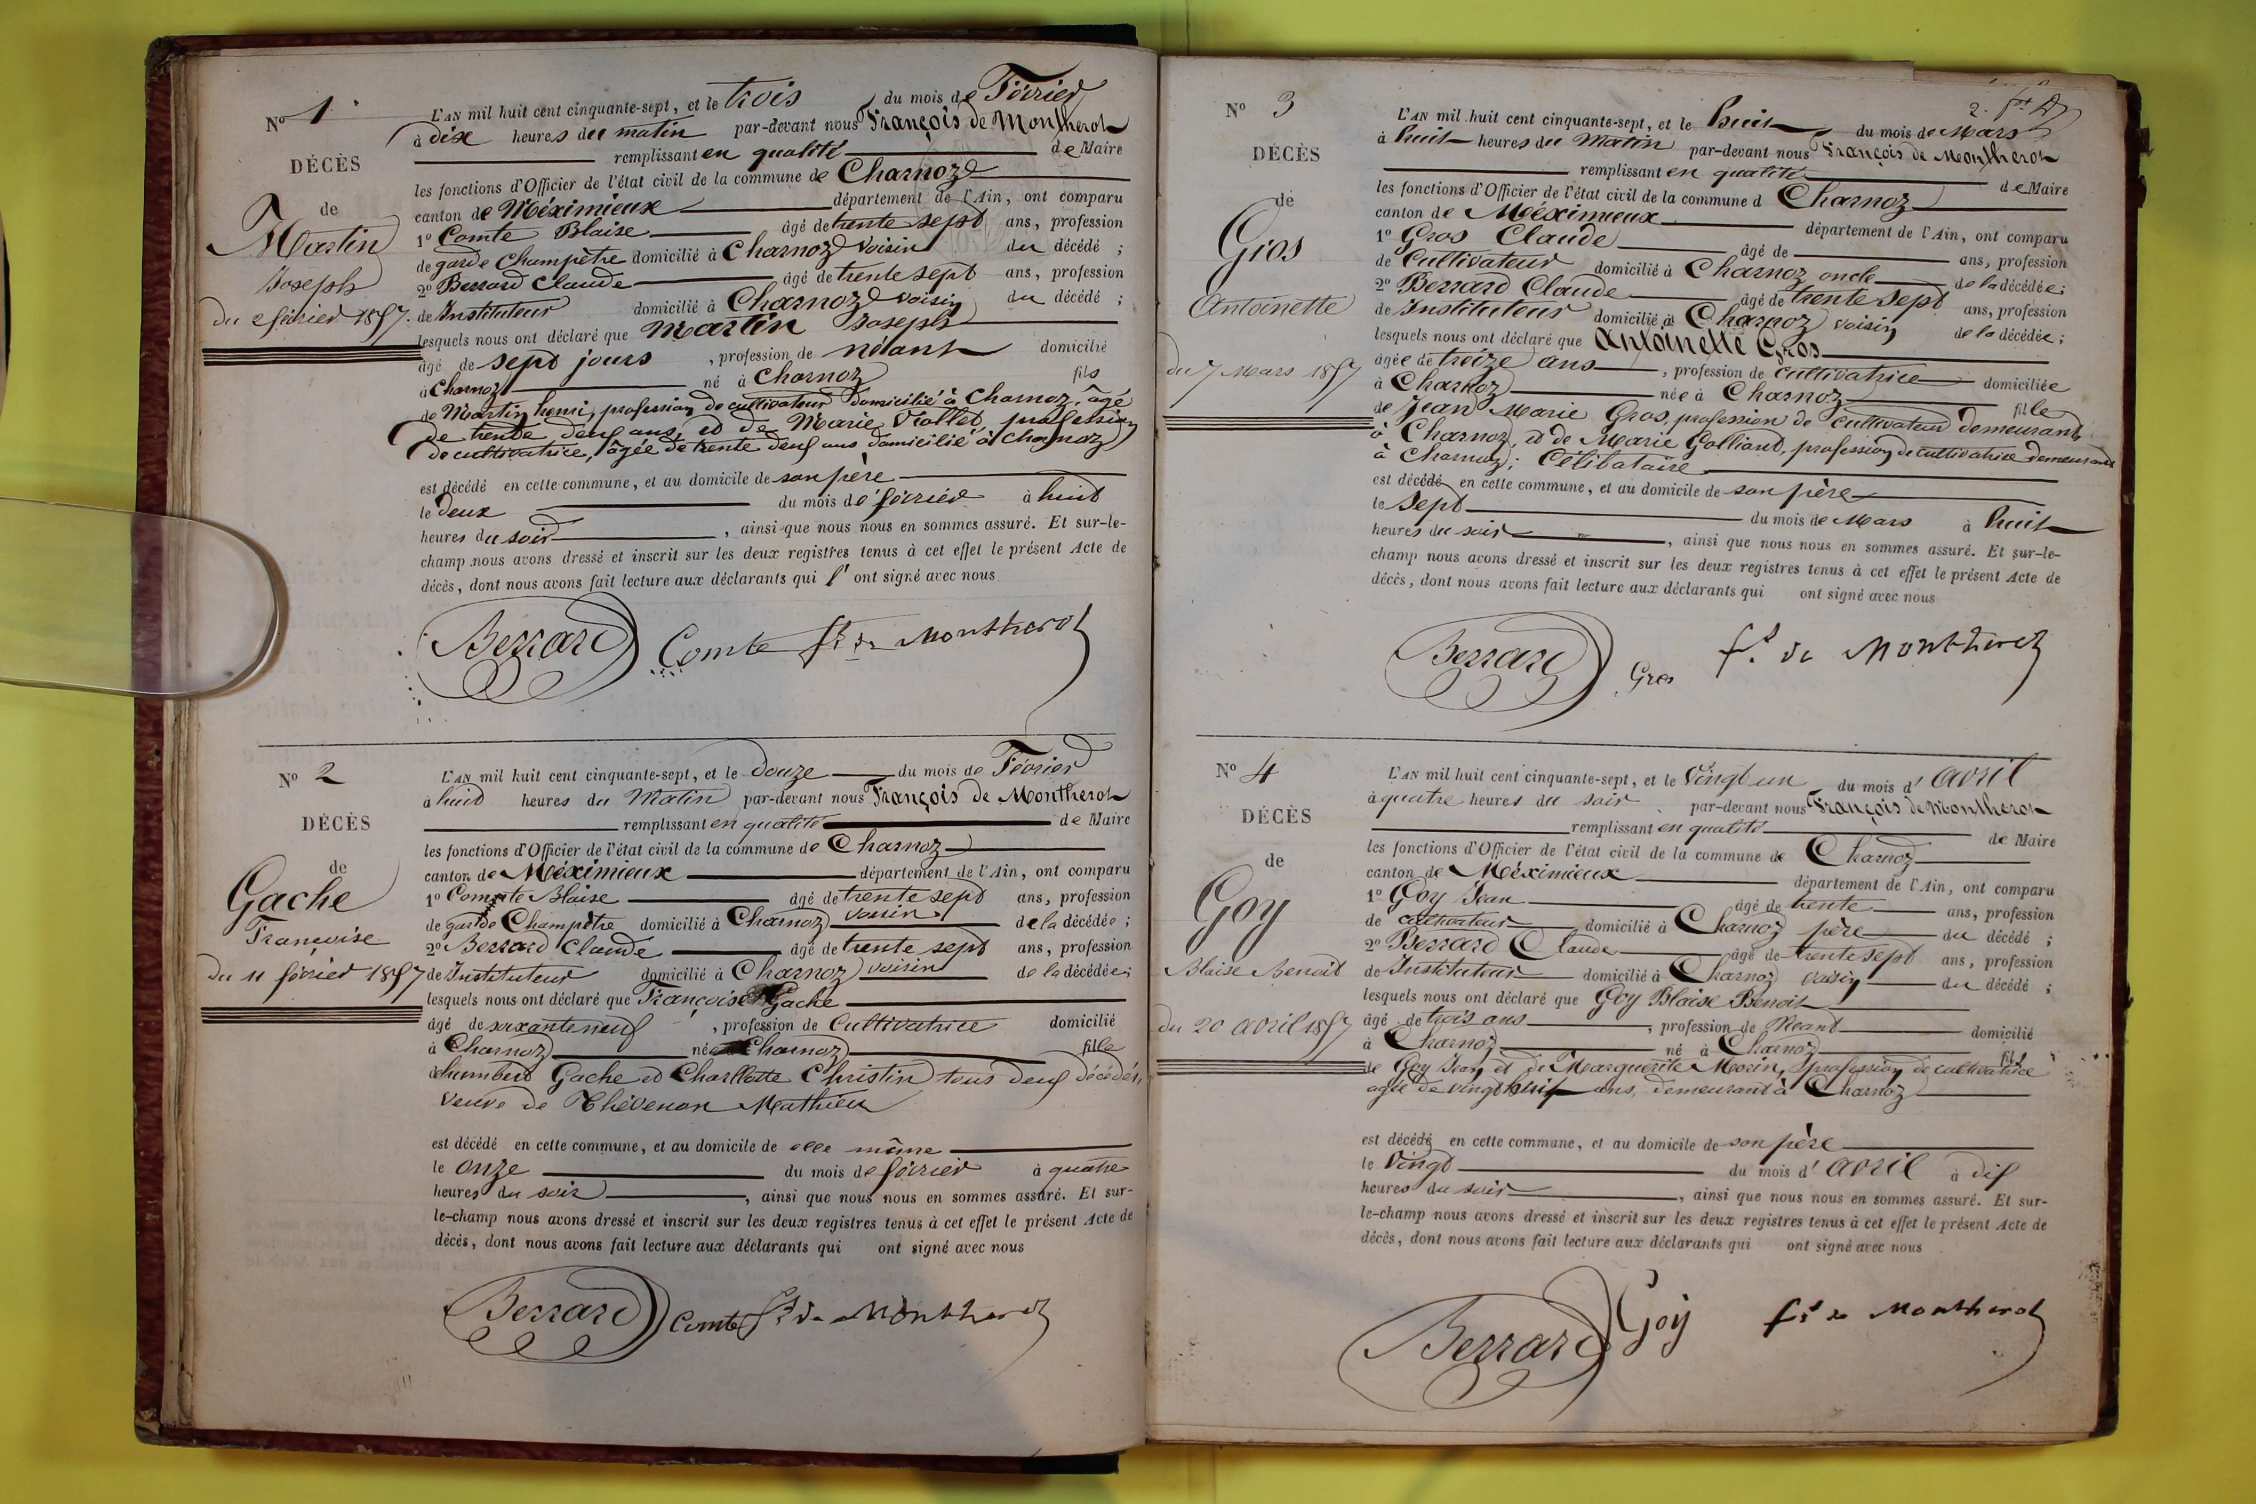 No 1
DÉCÈS
de
Martin
Joseph
du 2 février 1857.
L'AN mil huit cent cinquante-sept, et le trois du mois de Février
à dix heures du matin par-devant nous François de Montherot
remplissant en qualité de Maire
les fonctions d'Officier de l'état civil de la commune de Charnoz
canton de Méximieux département de l'Ain, ont comparu
1o Comte Blaise âgé de trente sept ans, profession
de garde Champêtre domicilié à Charnoz voisin du décédé ;
2o Berrard Claude âgé de trente sept ans, profession
de Instituteur domicilié à Charnoz voisin du décédé ;
lesquels nous ont déclaré que Martin Joseph
âgé de sept jours , profession de néant domicilié
à Charnoz né à Charnoz fils
de Martin henri, profession de cultivateur domicilié à Charnoz, âgé
de trente deux ans, et de Marie Viollet, profession
de cultivatrice, âgée de trente deux ans domicilié à Charnoz
est décédé en cette commune, et au domicile de son père
le deux du mois de février à huit
heures du soir , ainsi que nous nous en sommes assuré. Et sur-le-
champ nous avons dressé et inscrit sur les deux registres tenus à cet effet le présent Acte de
décès, dont nous avons fait lecture aux déclarants qui l' ont signé avec nous
Berrard Comte fs de Montherot
No 2
DÉCÈS
de
Gache
Françoise
du 11 février 1857
L'AN mil huit cent cinquante-sept, et le douze du mois de Février
à huit heures du Matin par-devant nous François de Montherot
remplissant en qualité de Maire
les fonctions d'Officier de l'état civil de la commune de Charnoz
canton de Méximieux département de l'Ain, ont comparu
1o Comte Blaise âgé de trente sept ans, profession
de garde Champêtre domicilié à Charnoz voisin de la décédée ;
2o Berrard Claude âgé de trente sept ans, profession
de Instituteur domicilié à Charnoz voisin de la décédée ;
lesquels nous ont déclaré que Françoise Gache
âgé de soixante neuf , profession de Cultivatrice domicilié
à Charnoz née à Charnoz fille
humbert Gache et Charlotte Christin tous deux décédés,
veuve de Thévenon Mathieu
est décédé en cette commune, et au domicile de elle même
le onze du mois de février à quatre
heures du soir , ainsi que nous nous en sommes assuré. Et sur-
le-champ nous avons dressé et inscrit sur les deux registres tenus à cet effet le présent Acte de
décès, dont nous avons fait lecture aux déclarants qui ont signé avec nous
Berrard Comte fs de Montherot
No 3
DÉCÈS
de
Gros
Antoinette
du 7 Mars 1857
L'AN mil huit cent cinquante-sept, et le huit du mois de Mars
à huit heures du Matin par-devant nous François de Montherot
remplissant en qualité de Maire
les fonctions d'Officier de l'état civil de la commune d Charnoz
canton de Méximieux département de l'Ain, ont comparu
1o Gros Claude âgé de ans, profession
de Cultivateur domicilié à Charnoz oncle de la décédée ;
2o Berrard Claude âgé de trente sept ans, profession
de Instituteur domicilié à Charnoz voisin de la décédée ;
lesquels nous ont déclaré que Antoinette Gros
âgée de treize ans , profession de cultivatrice domiciliée
à Charnoz née à Charnoz fille
de Jean Marie Gros, profession de Cultivateur demeurant
à Charnoz, et de Marie Galliard, profession de cultivatrice demeurant
à Charnoz ; Célibataire
est décédé en cette commune, et au domicile de son père
le sept du mois de Mars à huit
heures du soir , ainsi que nous nous en sommes assuré. Et sur-le-
champ nous avons dressé et inscrit sur les deux registres tenus à cet effet le présent Acte de
décès, dont nous avons fait lecture aux déclarants qui ont signé avec nous
Berrard Gros fs de Montherot
No 4
DÉCÈS
de
Goy
Blaise Benoit
du 20 avril 1857
L'AN mil huit cent cinquante-sept, et le Vingt un du mois d' avril
à quatre heures du soir par-devant nous François de Montherot
remplissant en qualité de Maire
les fonctions d'Officier de l'état civil de la commune de Charnoz
canton de Méximieux département de l'Ain, ont comparu
1o Goy Jean âgé de trente ans, profession
de cultivateur domicilié à Charnoz père du décédé ;
2o Berrard Claude âgé de trente sept ans, profession
de Instituteur domicilié à Charnoz voisin du décédé ;
lesquels nous ont déclaré que Goy Blaise Benoit
âgé de trois ans , profession de Néant domicilié
à Charnoz né à Charnoz fils
de Goy Jean et de Marguerite Morin, profession de cultivatrice
agée de vingt huit ans, demeurant à Charnoz
est décédé en cette commune, et au domicile de son père
le Vingt du mois d' avril à dix
heures du soir , ainsi que nous nous en sommes assuré. Et sur-
le-champ nous avons dressé et inscrit sur les deux registres tenus à cet effet le présent Acte de
décès, dont nous avons fait lecture aux déclarants qui ont signé avec nous
Berrard Goy fs de Montherot